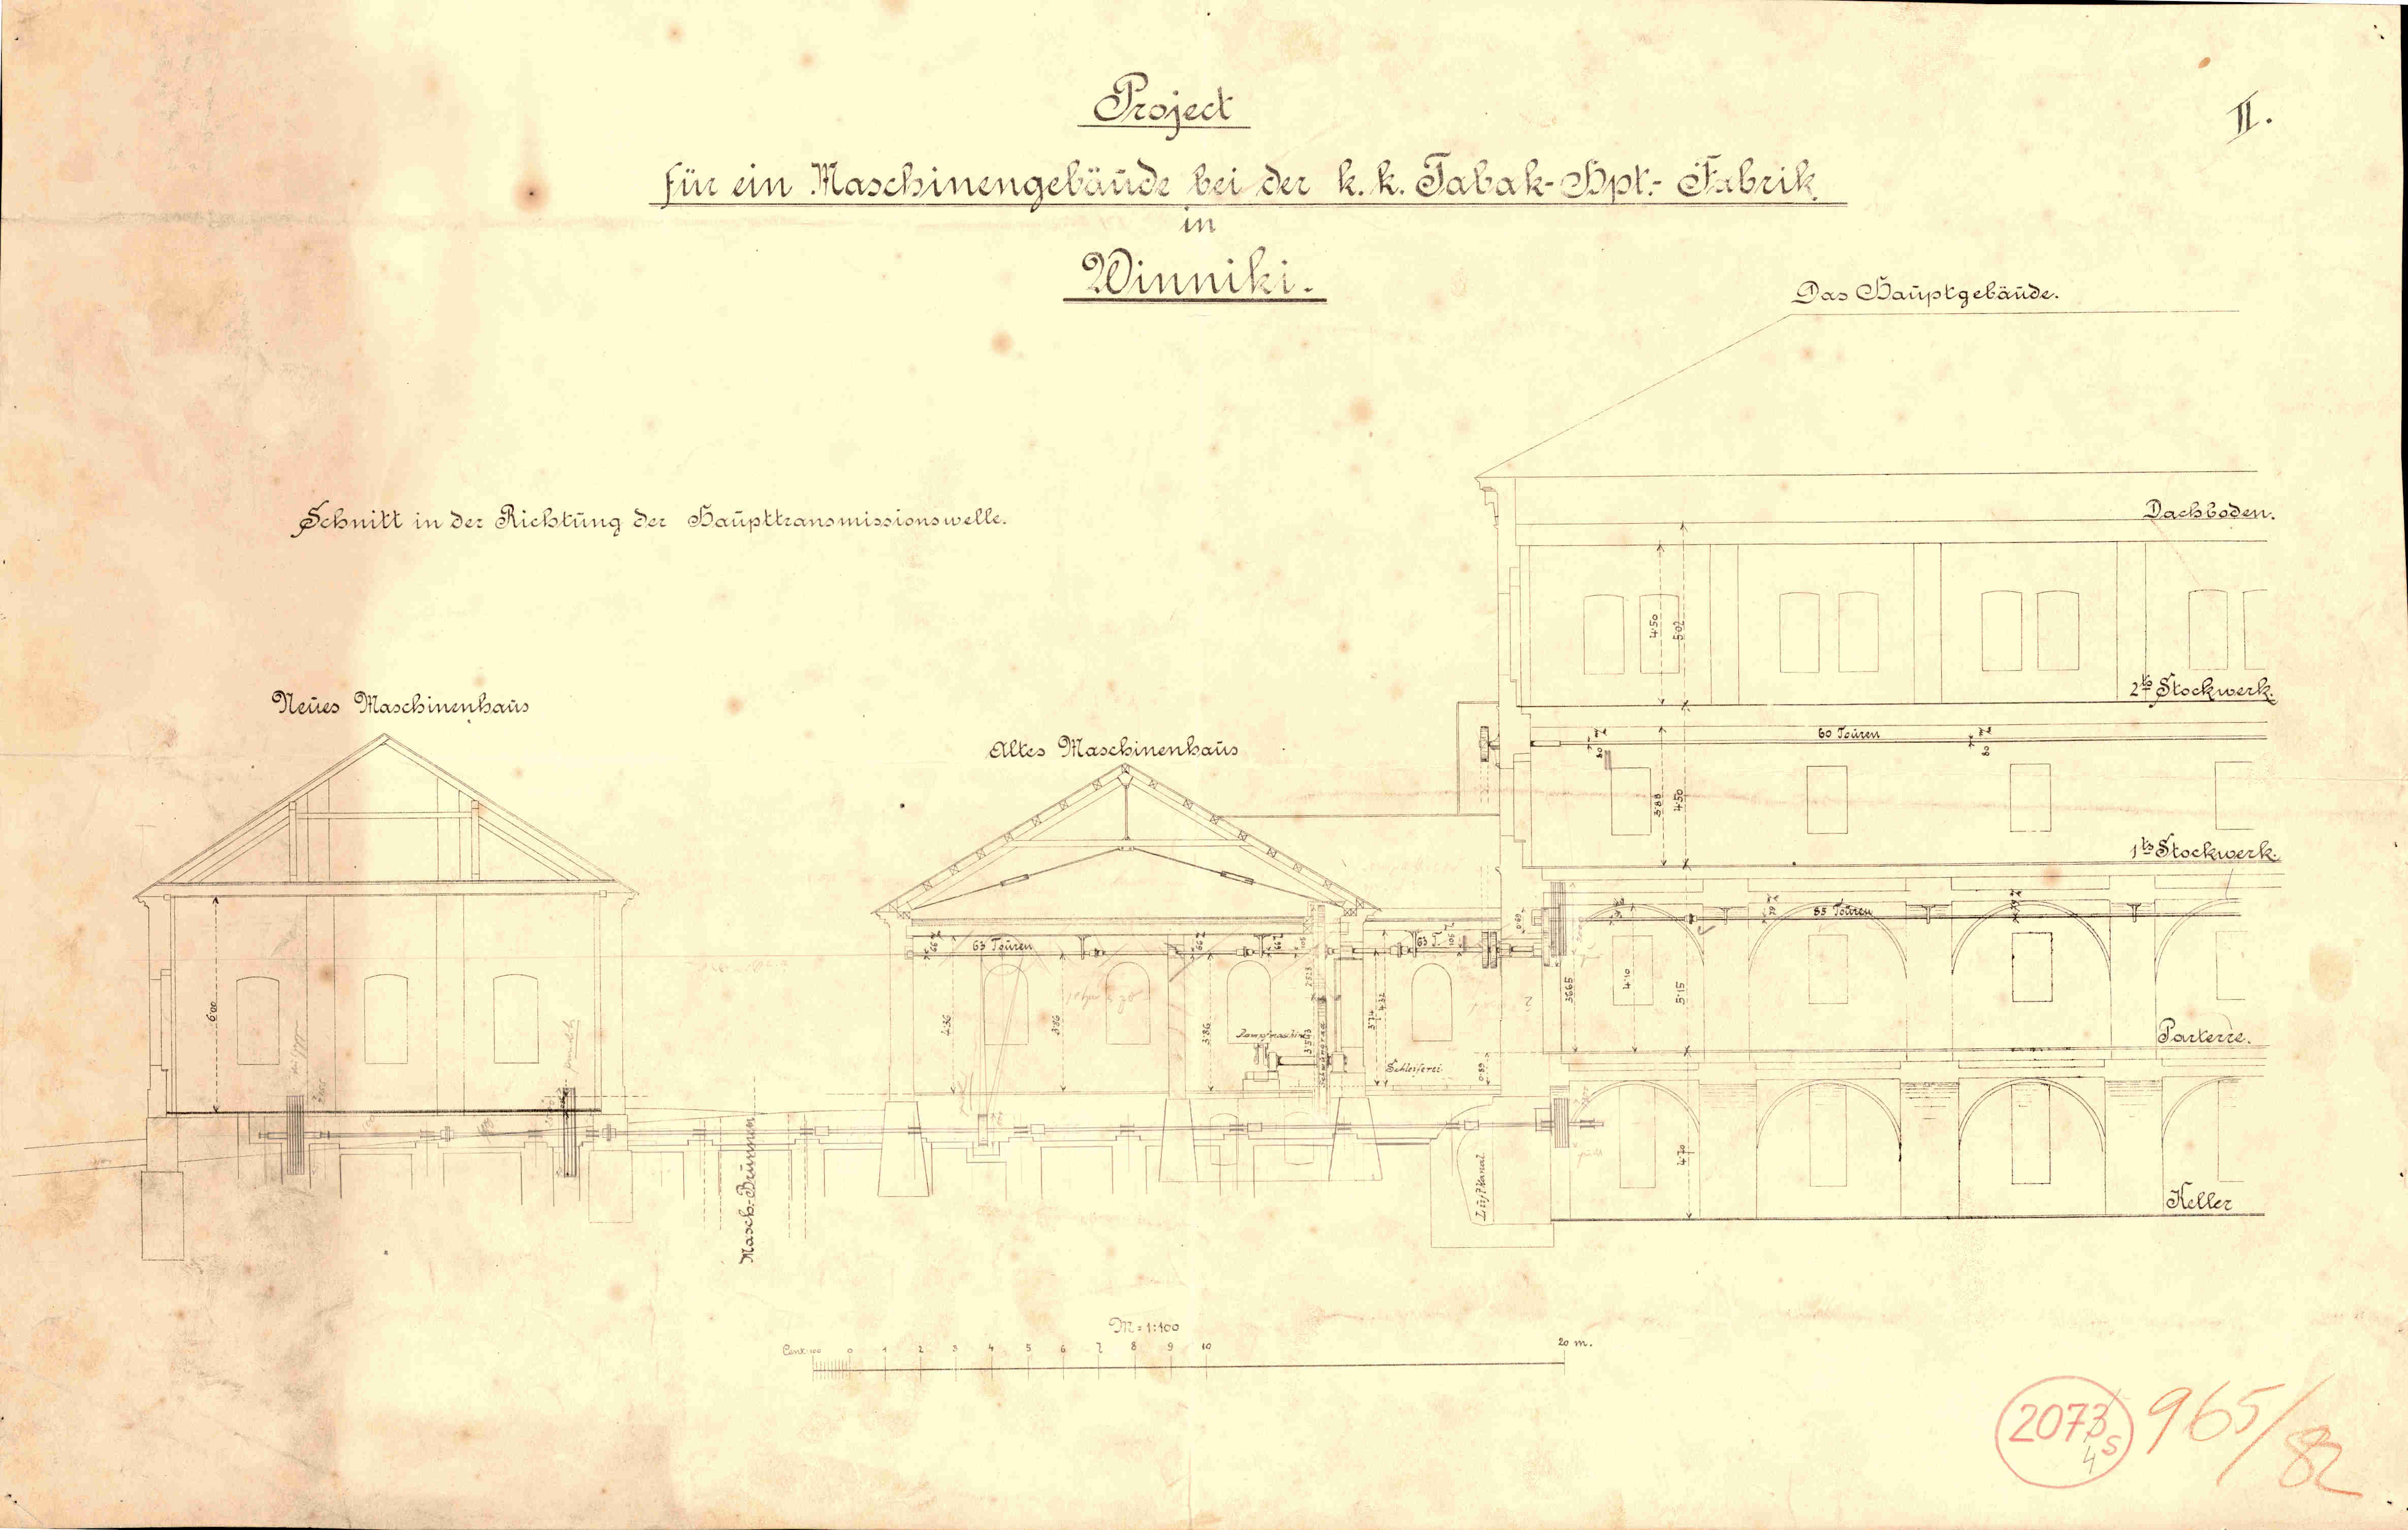 Project
II.
für ein Maschinengebäude bei der k. k. Tabak-Hpt.- Fabrik
in
Winniki.
Das Hauptgebäude.
Schnitt in der Richtung der Haupttransmissionswelle.
Dachboden.
4·50
5·02
2ts Stockwerk.
Neues Maschinenhaus
Altes Maschinenhaus
60 Touren
3·88
4·50
1ts Stockwerk.
63 Touren
63 T.
85 Touren
6·00
4·36
3·86
3·86
3·74
4·32
3·665
4·10
5·15
Dampfmaschine
Schwungrad
Schleiferei
0·89
Parterre.
Masch.-Brunnen
Luftkanal
4·70
Keller
M = 1:100
Cent. 100 0 1 2 3 4 5 6 7 8 9 10 20 m.
2073
4
S
965/82